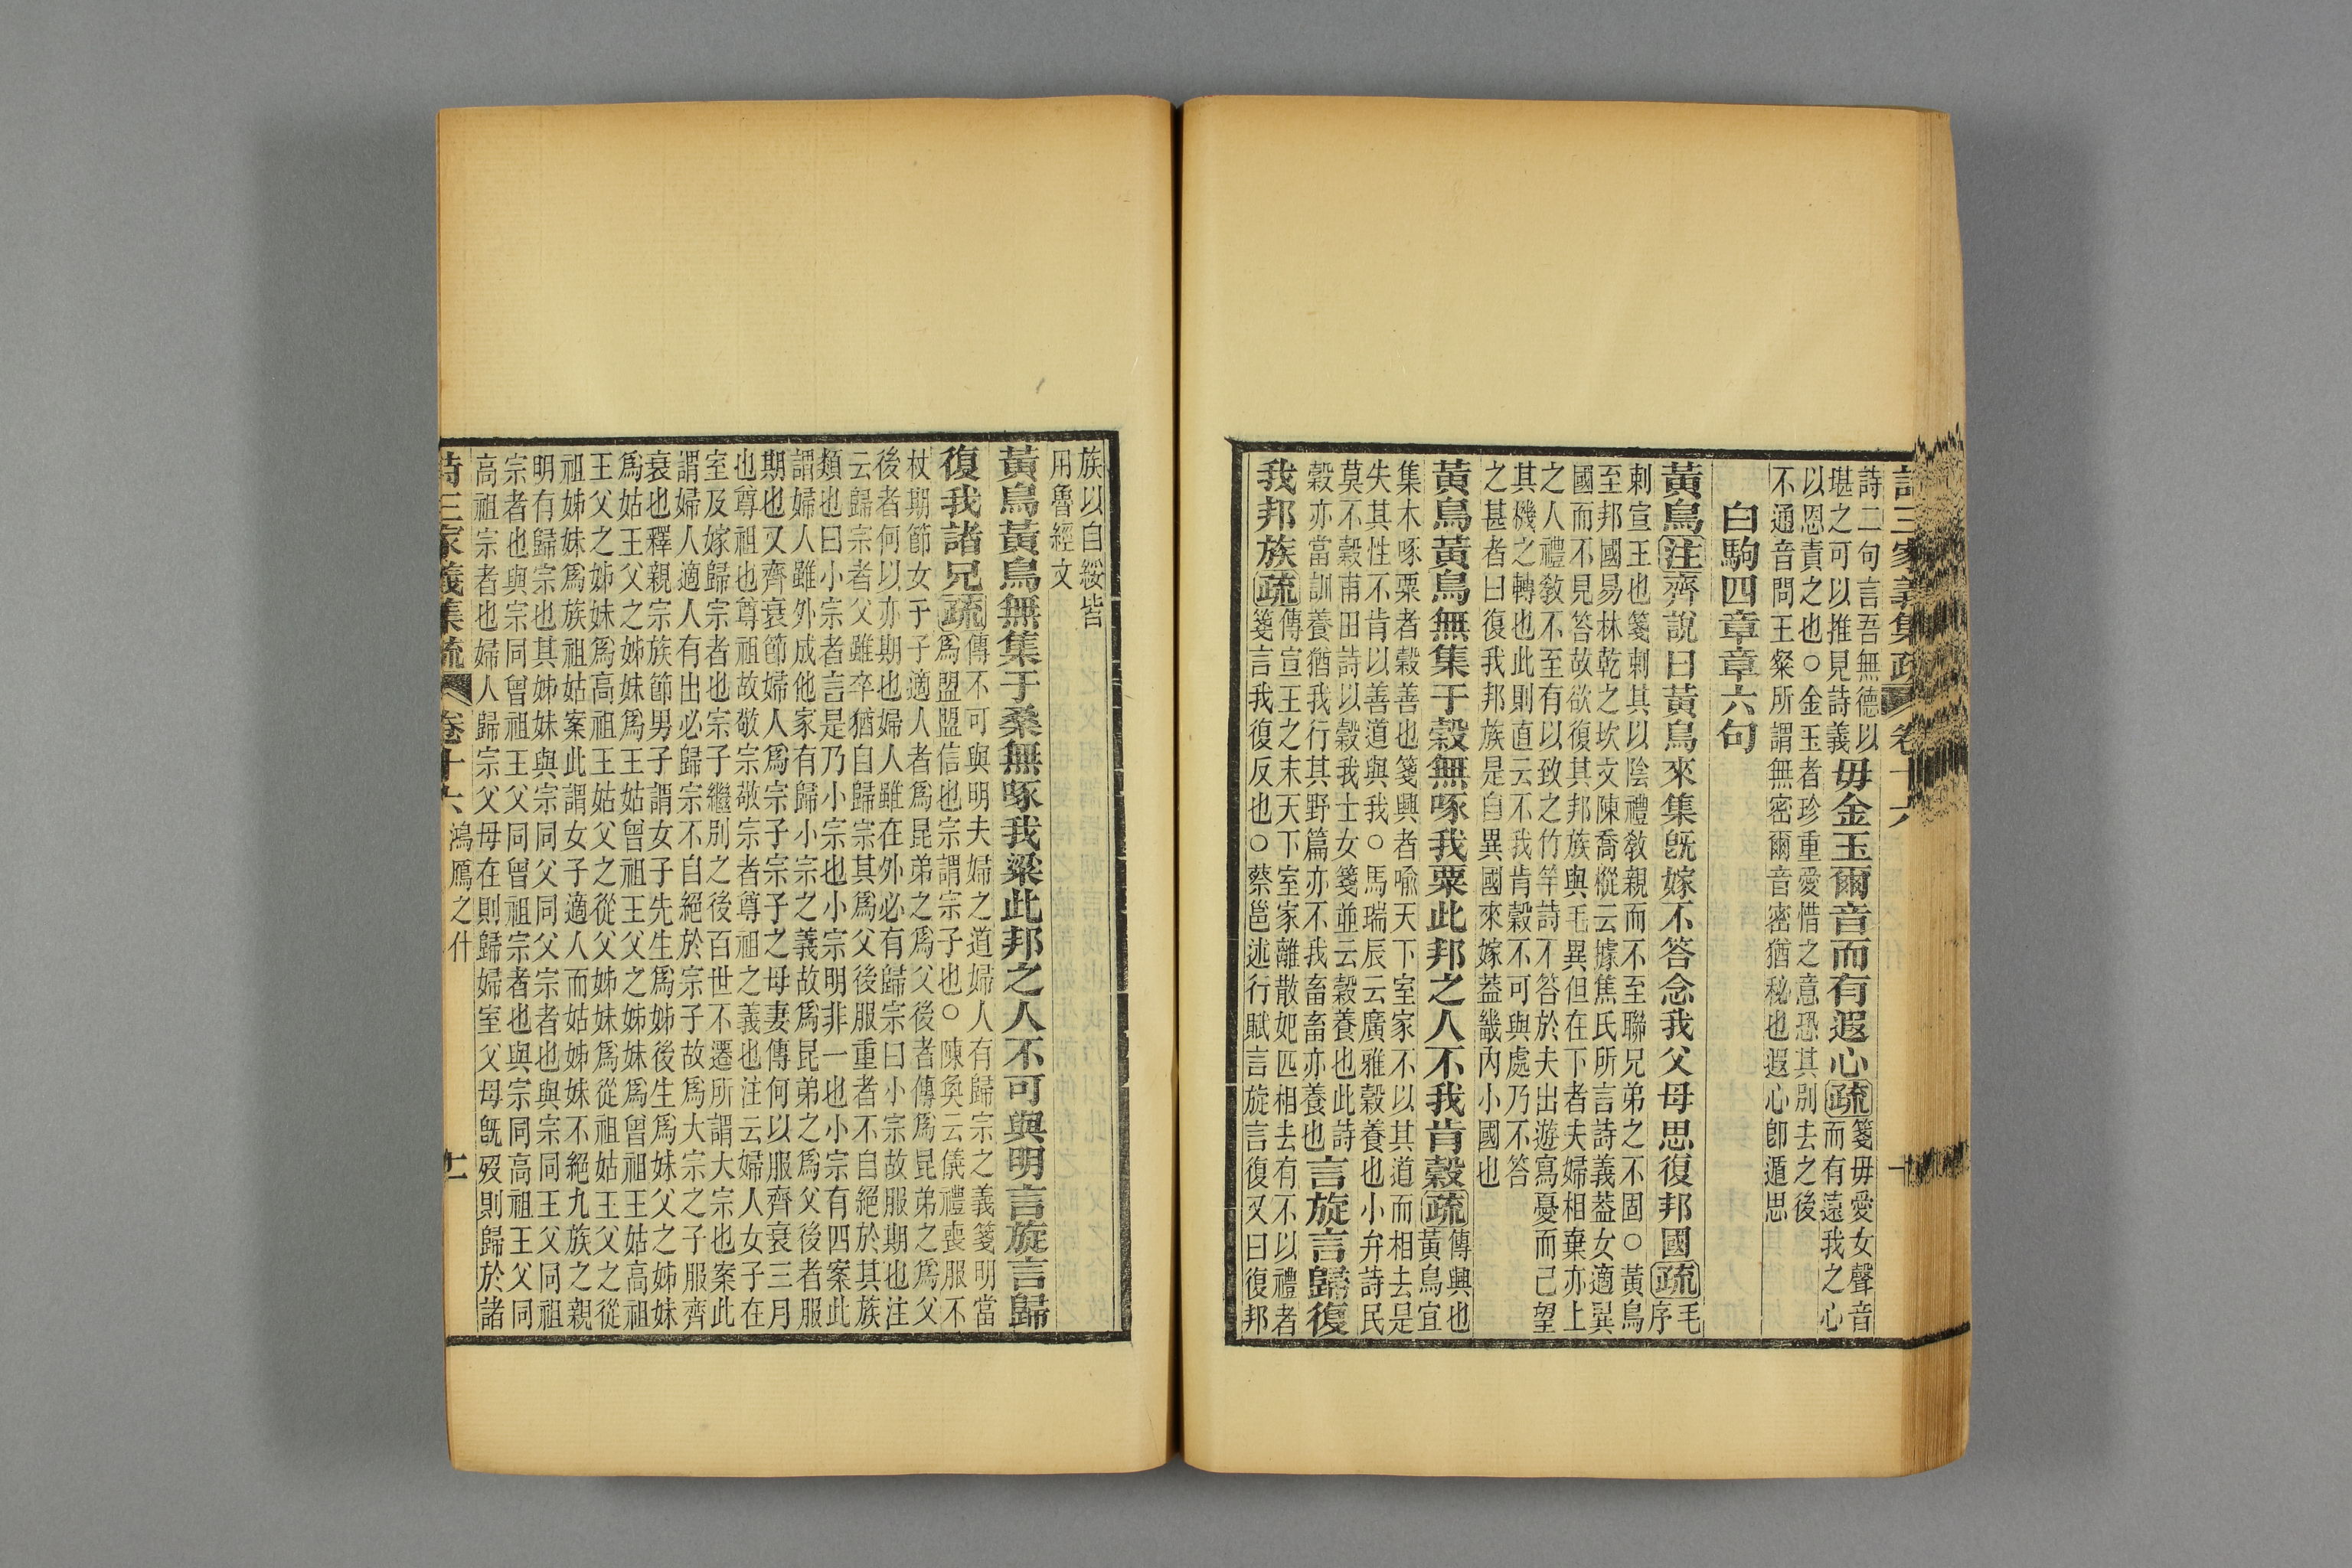 詩三家義集疏 卷十六 十
詩二句言吾無德以
堪之可以推見詩義毋金玉爾音而有遐心疏箋毋愛女聲音
而有遠我之心
以恩責之也○金玉者珍重愛惜之意恐其別去之後
不通音問王粲所謂無密爾音密猶秘也遐心卽遁思
白駒四章章六句
黃鳥注齊說曰黃鳥來集旣嫁不答念我父母思復邦國疏毛
序
刺宣王也箋刺其以陰禮敎親而不至聯兄弟之不固○黃鳥
至邦國易林乾之坎文陳喬樅云據焦氏所言詩義葢女適異
國而不見答故欲復其邦族與毛異但在下者夫婦相棄亦上
之人禮敎不至有以致之竹竿詩不答於夫出遊寫憂而已望
其機之轉也此則直云不我肯穀不可與處乃不答
之甚者曰復我邦族是自異國來嫁葢畿內小國也
黃鳥黃鳥無集于穀無啄我粟此邦之人不我肯穀疏傳興也
黃鳥宜
集木啄粟者穀善也箋興者喻天下室家不以其道而相去是
失其性不肯以善道與我○馬瑞辰云廣雅穀養也小弁詩民
莫不穀甫田詩以穀我士女箋並云穀養也此詩
穀亦當訓養猶我行其野篇亦不我畜畜亦養也言旋言歸復
我邦族疏傳宣王之末天下室家離散妃匹相去有不以禮者
箋言我復反也○蔡邕述行賦言旋言復又曰復邦
族以自綏皆
用魯經文
黃鳥黃鳥無集于桑無啄我粱此邦之人不可與明言旋言歸
復我諸兄疏傳不可與明夫婦之道婦人有歸宗之義箋明當
爲盟盟信也宗謂宗子也○陳奐云儀禮喪服不
杖期節女子子適人者爲昆弟之爲父後者傳爲昆弟之爲父
後者何以亦期也婦人雖在外必有歸宗曰小宗故服期也注
云歸宗者父雖卒猶自歸宗其爲父後服重者不自絕於其族
類也曰小宗者言是乃小宗也小宗明非一也小宗有四案此
謂婦人雖外成他家有歸小宗之義故爲昆弟之爲父後者服
期也又齊衰節婦人爲宗子宗子之母妻傳何以服齊衰三月
也尊祖也尊祖故敬宗敬宗者尊祖之義也注云婦人女子在
室及嫁歸宗者也宗子繼別之後百世不遷所謂大宗也案此
謂婦人適人有出必歸宗不自絕於宗子故爲大宗之子服齊
衰也釋親宗族節男子謂女子先生爲姊後生爲妹父之姊妹
爲姑王父之姊妹爲王姑曾祖王父之姊妹爲曾祖王姑高祖
王父之姊妹爲高祖王姑父之從父姊妹爲從祖姑王父之從
祖姊妹爲族祖姑案此謂女子適人而姑姊妹不絕九族之親
明有歸宗也其姊妹與宗同父同父宗者也與宗同王父同祖
宗者也與宗同曾祖王父同曾祖宗者也與宗同高祖王父同
高祖宗者也婦人歸宗父母在則歸婦室父母旣歿則歸於諸
詩三家義集疏 卷十六 鴻鴈之什 十一